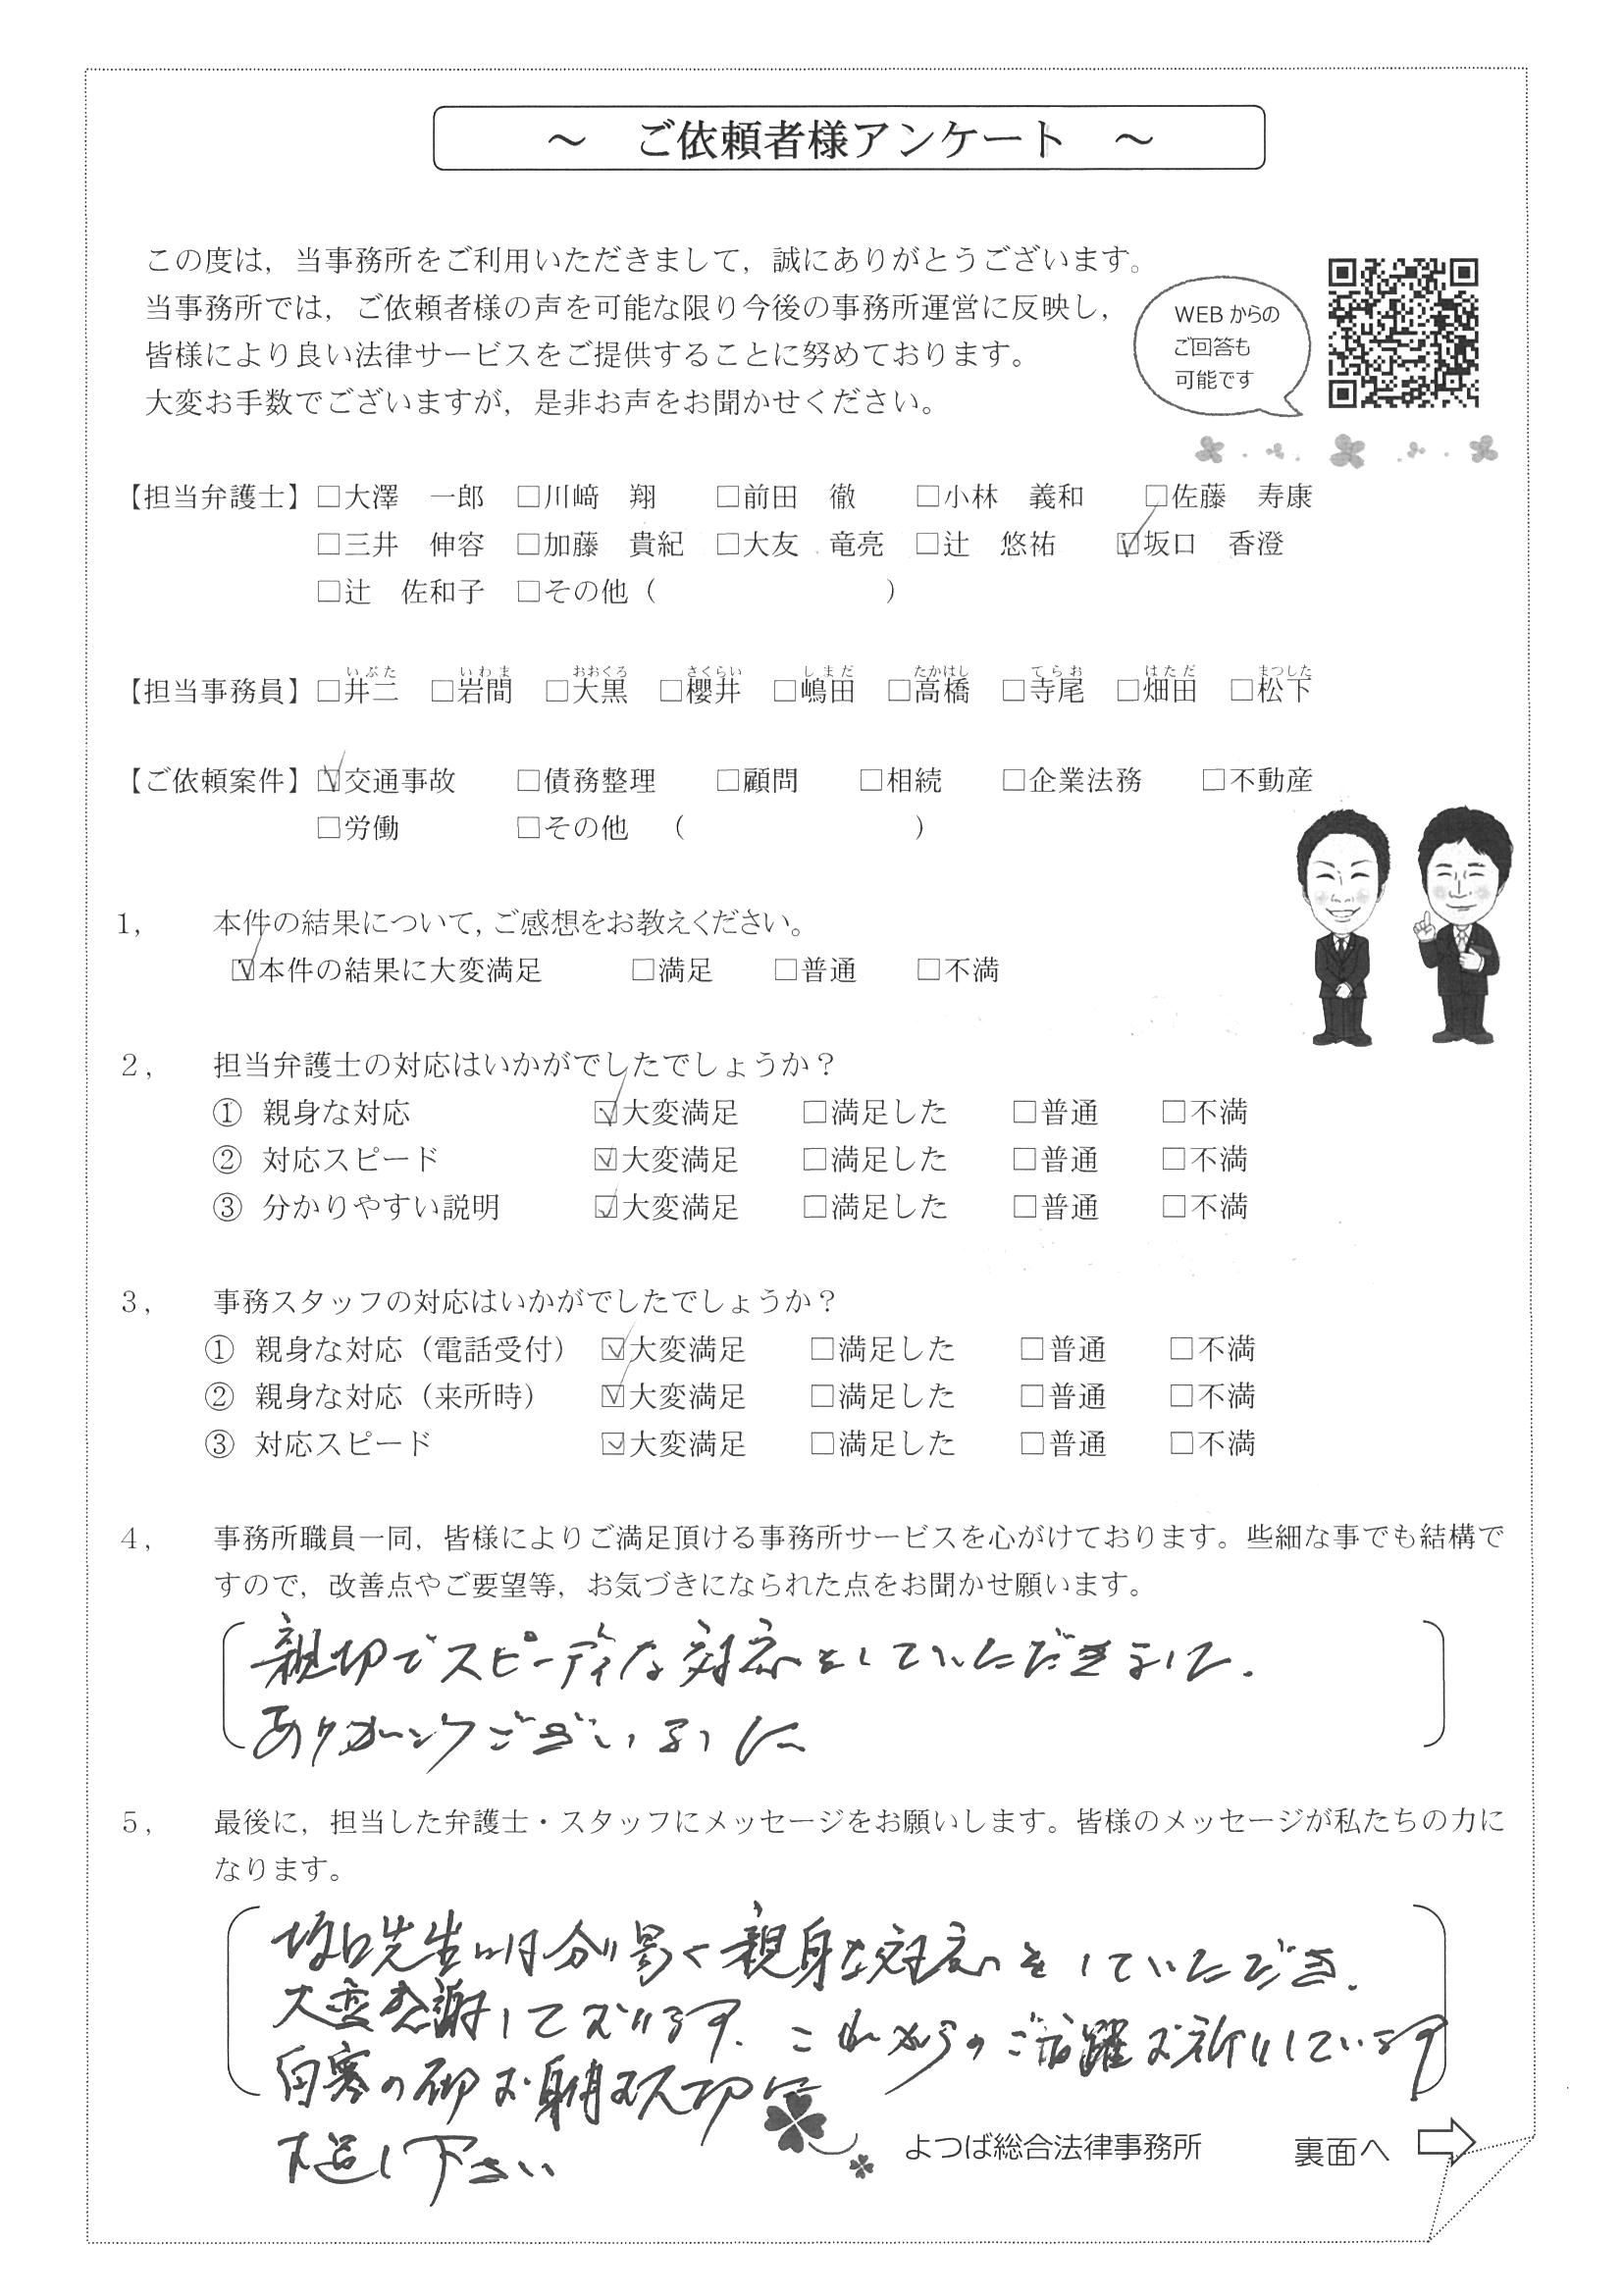 ～　ご依頼者様アンケート　～
この度は，当事務所をご利用いただきまして，誠にありがとうございます。
当事務所では，ご依頼者様の声を可能な限り今後の事務所運営に反映し，
皆様により良い法律サービスをご提供することに努めております。
大変お手数でございますが，是非お声をお聞かせください。
WEBからの
ご回答も
可能です
【担当弁護士】□大澤　一郎　□川﨑　翔　□前田　徹　□小林　義和　□佐藤　寿康
□三井　伸容　□加藤　貴紀　□大友　竜亮　□辻　悠祐　☑坂口　香澄
□辻　佐和子　□その他（　　　　　　　　）
いぶた　いわま　おおくろ　さくらい　しまだ　たかはし　てらお　はただ　まつした
【担当事務員】□井二　□岩間　□大黒　□櫻井　□嶋田　□高橋　□寺尾　□畑田　□松下
【ご依頼案件】☑交通事故　□債務整理　□顧問　□相続　□企業法務　□不動産
□労働　□その他　（　　　　　　　　）
1，　本件の結果について，ご感想をお教えください。
☑本件の結果に大変満足　□満足　□普通　□不満
2，　担当弁護士の対応はいかがでしたでしょうか？
①　親身な対応　☑大変満足　□満足した　□普通　□不満
②　対応スピード　☑大変満足　□満足した　□普通　□不満
③　分かりやすい説明　☑大変満足　□満足した　□普通　□不満
3，　事務スタッフの対応はいかがでしたでしょうか？
①　親身な対応（電話受付）　☑大変満足　□満足した　□普通　□不満
②　親身な対応（来所時）　☑大変満足　□満足した　□普通　□不満
③　対応スピード　☑大変満足　□満足した　□普通　□不満
4，　事務所職員一同，皆様によりご満足頂ける事務所サービスを心がけております。些細な事でも結構で
すので，改善点やご要望等，お気づきになられた点をお聞かせ願います。
親切でスピーディな対応をしていただきました。
ありがとうございました
5，　最後に，担当した弁護士・スタッフにメッセージをお願いします。皆様のメッセージが私たちの力に
なります。
坂口先生には分り易く親身な対応をしていただき、
大変感謝しております。これからのご活躍お祈りしています
向寒の砌お身体お大切に
お過し下さい
よつば総合法律事務所
裏面へ